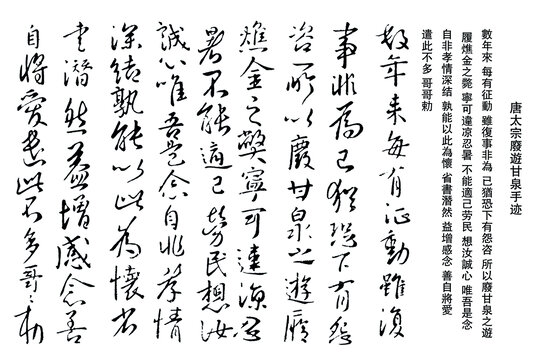 唐太宗廢遊甘泉手迹
數年來 每有征動 雖復事非為 己猶恐下有怨咨 所以廢甘泉之遊
履燋金之斃 寧可違凉忍暑 不能適己劳民 想汝誠心 唯吾是念
自非孝情深结 孰能以此為懷 省書潛然 益增感念 善自將愛
遣此不多 哥哥勅
数年来每有征動雖復
事非為己猶恐下有怨
咨所以廢甘泉之遊履
燋金之弊寧可違凉忍
暑不能適己勞民想汝
誠心唯吾是念自非孝情
深结孰能以此為懷省
書潛然益增感念善
自將愛遣此不多哥〻勅